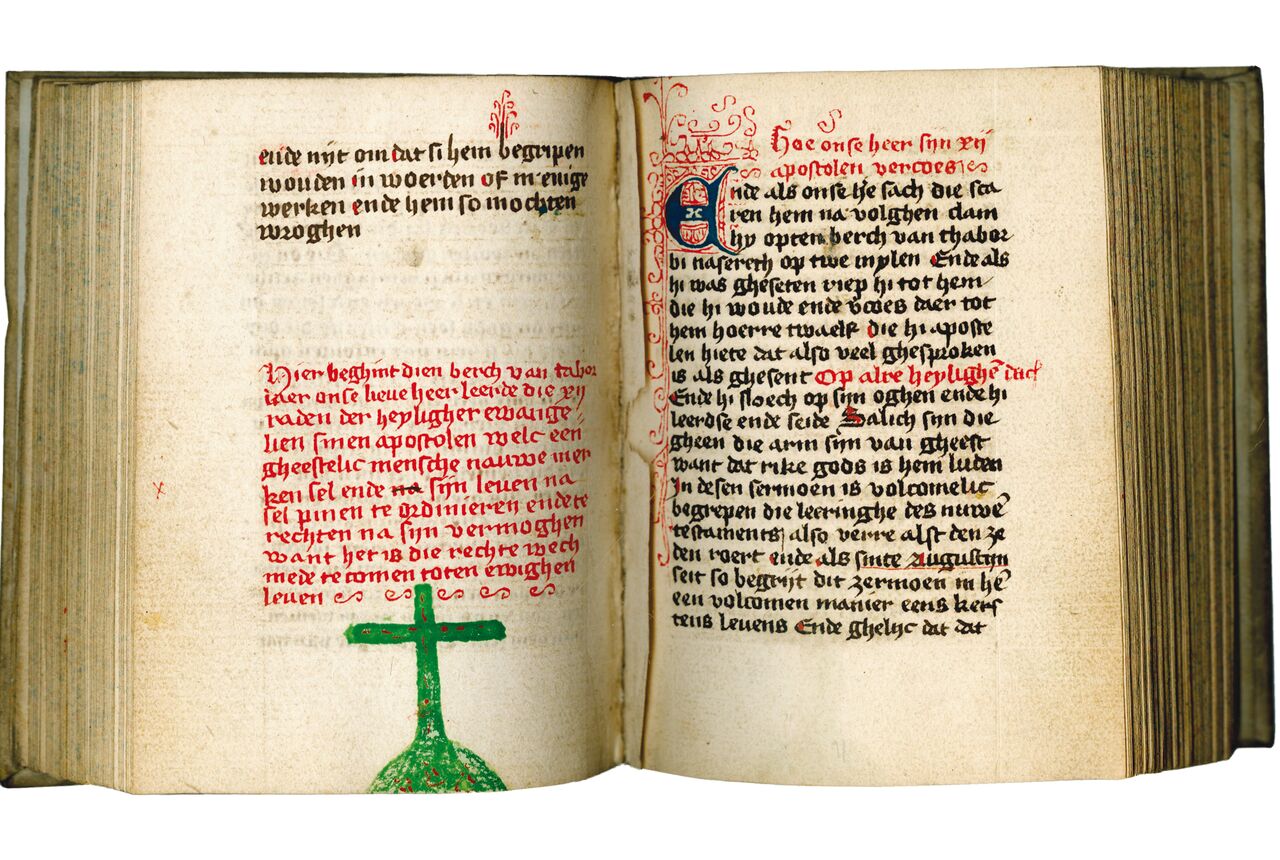 ende niit om dat si hem begripen
wouden in woerden of in enige
werken ende hem so mochten
wroghen
Hier beghint dien berch van tabor
daer onse lieue heer leerde die xij
raden der heyligher ewange
lien sinen apostolen welc een
gheestelic mensche nauwe mer
ken sel ende na sijn leven na
sel pinen te ordinieren ende te
rechten na sijn vermoghen
want het is die rechte wech
mede te comen toten ewighen
leven
Hoe onse heer sijn xij
apostolen vercoes
Ende als onse he sach die sca
ren hem na volghen clam
hy opten berch van thabor
bi nasereth op twe mylen Ende als
hi was gheseten riep hi tot hem
die hi woude ende vcoes daer tot
hem hoerre twaelf die hi aposte
len hiete dat also veel ghesproken
is als ghesent Op alre heylighē dach
Ende hi sloech op sijn oghen ende hi
leerdse ende seide Salich sijn die
gheen die arm sijn van gheest
want dat rike gods is hem luden
In desen sermoen is volcomelic
begrepen die leeringhe des nuwē
testaments also verre alst den ze
den roert ende als sinte Augustijn
seit so begrijt dit zermoen in hē
een volcomen manier eens kers
tens levens Ende ghelijc dat dat